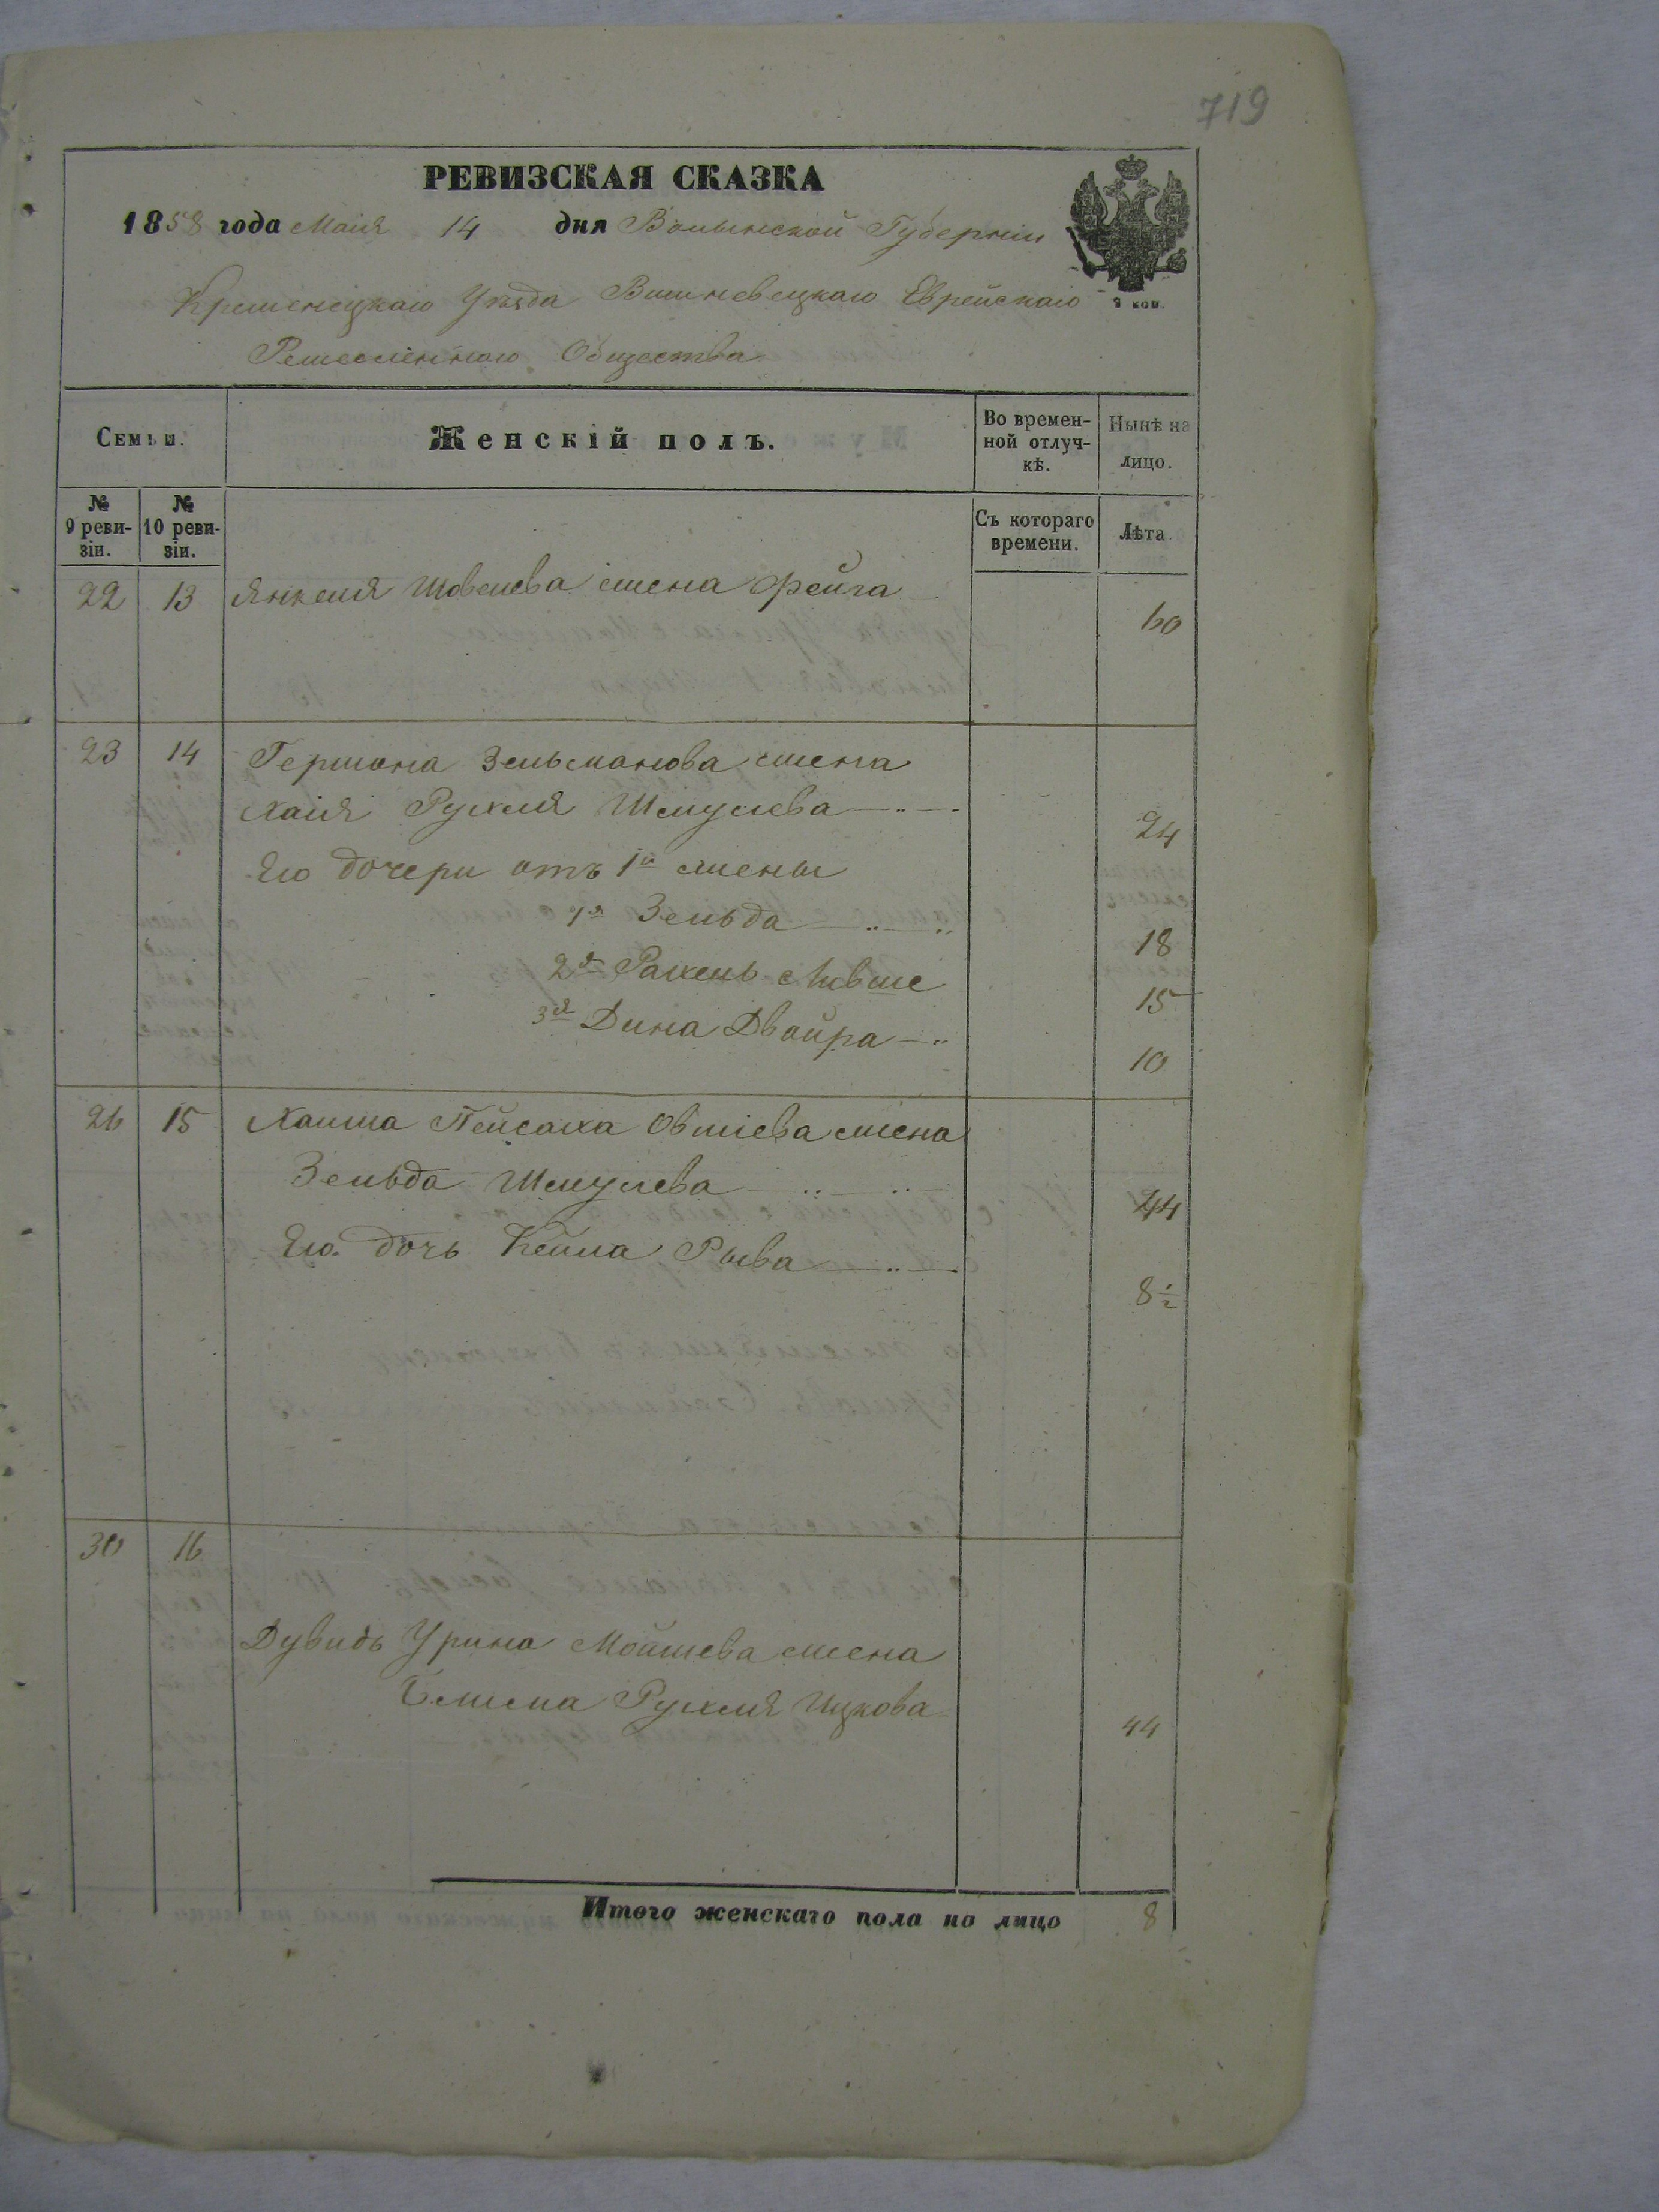 719
РЕВИЗСКАЯ СКАЗКА
1858 года Маія 14 дня Волынской Губерніи
Кременецкаго Уѣзда Вишневецкаго Еврейскаго
Ремесленнаго Общества
2 коп.
Семьи. Женскій полъ. Во времен-ной отлуч-кѣ. Нынѣ на лицо.
№ 9 реви-зіи. № 10 реви-зіи. Съ котораго времени. Лѣта.
22 13 Янкеля Шовелева жена Фейга 60
23 14 Гершона Зельманова жена
Хаія Рухля Шмулева 24
Его дочери отъ 1й жены
1я Зельда 18
2я Рахель Ливше 15
3я Дина Двойра 10
26 15 Хаима Пейсаха Овшіева жена
Зельда Шмулева 44
Его дочь Кейла Рыва 8 1/2
30 16
Дувидъ Урина Мошкева жена
Рухля Ицкова 44
Итого женскаго пола на лицо 8